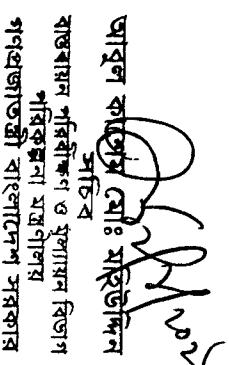 আবুল কাশেম মোঃ মহিউদ্দিন
সচিব
বাস্তবায়ন পরিবীক্ষণ ও মূল্যায়ন বিভাগ
পরিকল্পনা মন্ত্রণালয়
গণপ্রজাতন্ত্রী বাংলাদেশ সরকার